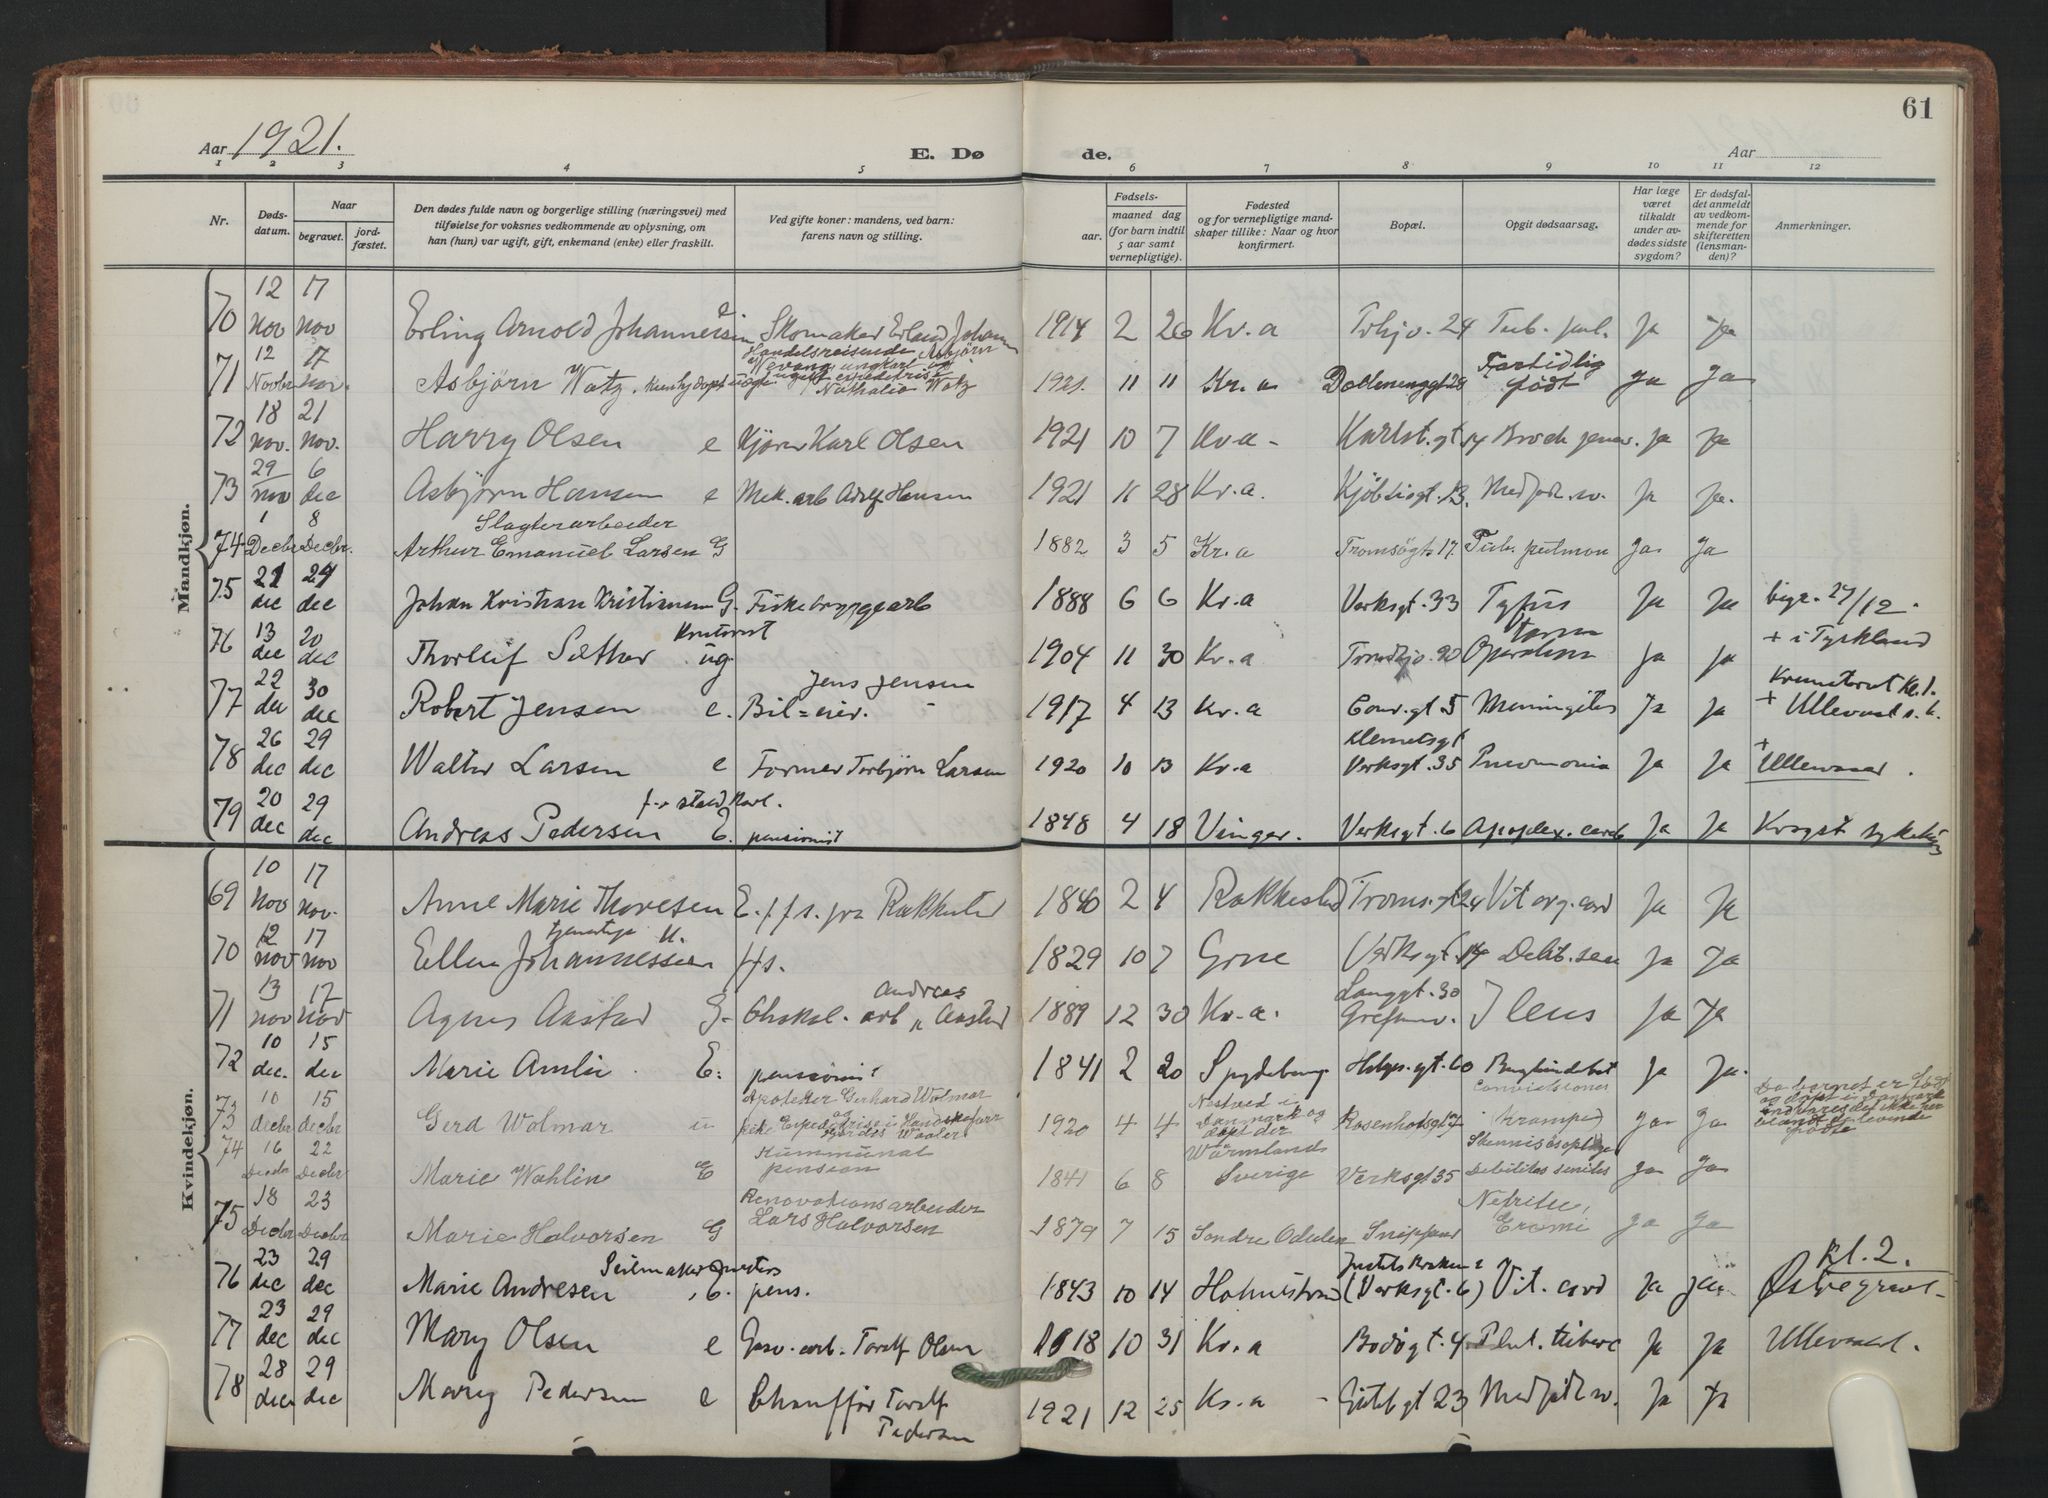 61
Aar 1921.
E. Døde.
Aar
1 2 3 4 5 6 7 8 9 10 11 12
Nr.
Døds-datum.
Naar
begravet.
jord-fæstet.
Den dødes fulde navn og borgerlige stilling (næringsvei) med
tilføielse for voksnes vedkommende av oplysning, om
han (hun) var ugift, gift, enkemand (enke) eller fraskilt.
Ved gifte koner: mandens, ved barn:
farens navn og stilling.
Fødsels-
aar.
maaned dag
(for barn indtil
5 aar samt
vernepligtige).
Fødested
og for vernepligtige mand-
skaper tillike: Naar og hvor
konfirmert.
Bopæl.
Opgit dødsaarsag.
Har læge
været
tilkaldt
under av-
dødes sidste
sygdom?
Er dødsfal-
det anmeldt
av vedkom-
mende for
skifteretten
(lensman-
den)?
Anmerkninger.
Mandkjøn.
70 12 nov 17 nov Erling Arnold Johannessen e Skomaker Erland Johann 1914 2 26 Kr.a 24 Tub. pul. Ja Ja
71 12 Novbr 17 nov. Asbjörn Watz. Handelsreisende Asbjörn ungkar og ugift Nathalie Watz 1921. 11 11 Kr.a Fortidlig født Ja Ja
72 18 nov. 21 nov. Harry Olsen e Kjörer Karl Olsen 1921 10 7 Kr.a - Karlst.gt. 14 Ja Ja
73 29 nov 6 dec Asbjørn Hansen e Mek. arb Adolf Hansen 1921 11 28 Kr.a. 13. Medfødt sv. Ja Ja.
74 1 Decbr 8 Decbr. Slagterarbeider
Arthur Emanuel Larsen G 1882 3 5 Kr.a Tromsögt 17. Tub. pulmon Ja Ja
75 21 dec 29 dec Johan Kristian Kristiansen G. Fiskebryggearb 1888 6 6 Kr.a Verksgt. 33 Tyfus Ja Ja begr. 29/12.
76 13 dec 20 dec Thorleif Sæther Kontorist ug. 1904 11 30 Kr.a 20 Operation Ja Ja + i Tyskland
77 22 dec 30 dec Robert Jensen e. Jens Jensen Bil=eier. 1917 4 13 Kr.a 5 Meningitis Ja Ja + Ullevaal
78 26 dec 29 dec Walter Larsen e Former Torbjørn Larsen 1920 10 13 Kr.a Klemetsgt Verksgt. 35 Pneumonia Ja Ja + Ullevaal.
79 20 dec 29 dec Andreas Pedersen E. pensionist 1848 4 18 Vinger. Verksgt. 6 Apoplex. cereb Ja Ja
Kvindekjøn.
69 10 nov 17 nov. Anne Marie Thoresen E. f.f.s. fra Rakkestad 1840 2 4 Rakkestad Troms.gt 24 Vit. org. cord Ja Ja
70 12 nov 17 nov Ellen Johannessen tjenestepige u. ffs. 1829 10 7 Grue Verksgt. 14 Debil. sen Ja Ja
71 13 nov 17 nov Agnes Aastad G. arb Andreas Aastad 1889 12 30 Kr.a. Langgt. 30 Ileus Ja Ja
72 10 dec. 15 dec Marie Amlie. E. pensionist 1841 2 20 Spydeberg Helges.gt. 60 Ja Ja.
73 10 decbr 15 decbr Gerd Wolmar u Apoteker Gerhard Wolmar og Gerdis Waaler 1920 4 4 Nestved i Danmark og döpt der Rosenhofsgt 17 Convulsiones Kramper Ja Ja Da barnet er født og døpt i Danmark indføres det ikke her blandt de levende födte
74 16 Decbr 22 Decbr Marie Wahlin E Kommunal pension 1841 6 8 Wärmland Sverige Verksgt 35 Debilitas senilis Ja Ja
75 18 Decbr 23 Decbr Marie Halvorsen G Renovationsarbeider Lars Halvorsen 1879 7 15 Söndre Odalen Ja Ja
76 23 dec 29 dec Marie Andresen Seilmaker , E. pens. 1843 10 14 Holmestrand (Verksgt. 6) Vit. cord Ja Ja Kl. 2. Østregravl.
77 23 dec 29 dec Mary Olsen e arb. Toralf Olsen 1918 10 31 Kr.a Bodøgt. 4 Ja Ja Ullevaal.
78 28 dec. 29 dec Mary Pedersen e Chauffør Toralf Pedersen 1921 12 25 Kr.a 23 Medfødt sv. Ja Ja